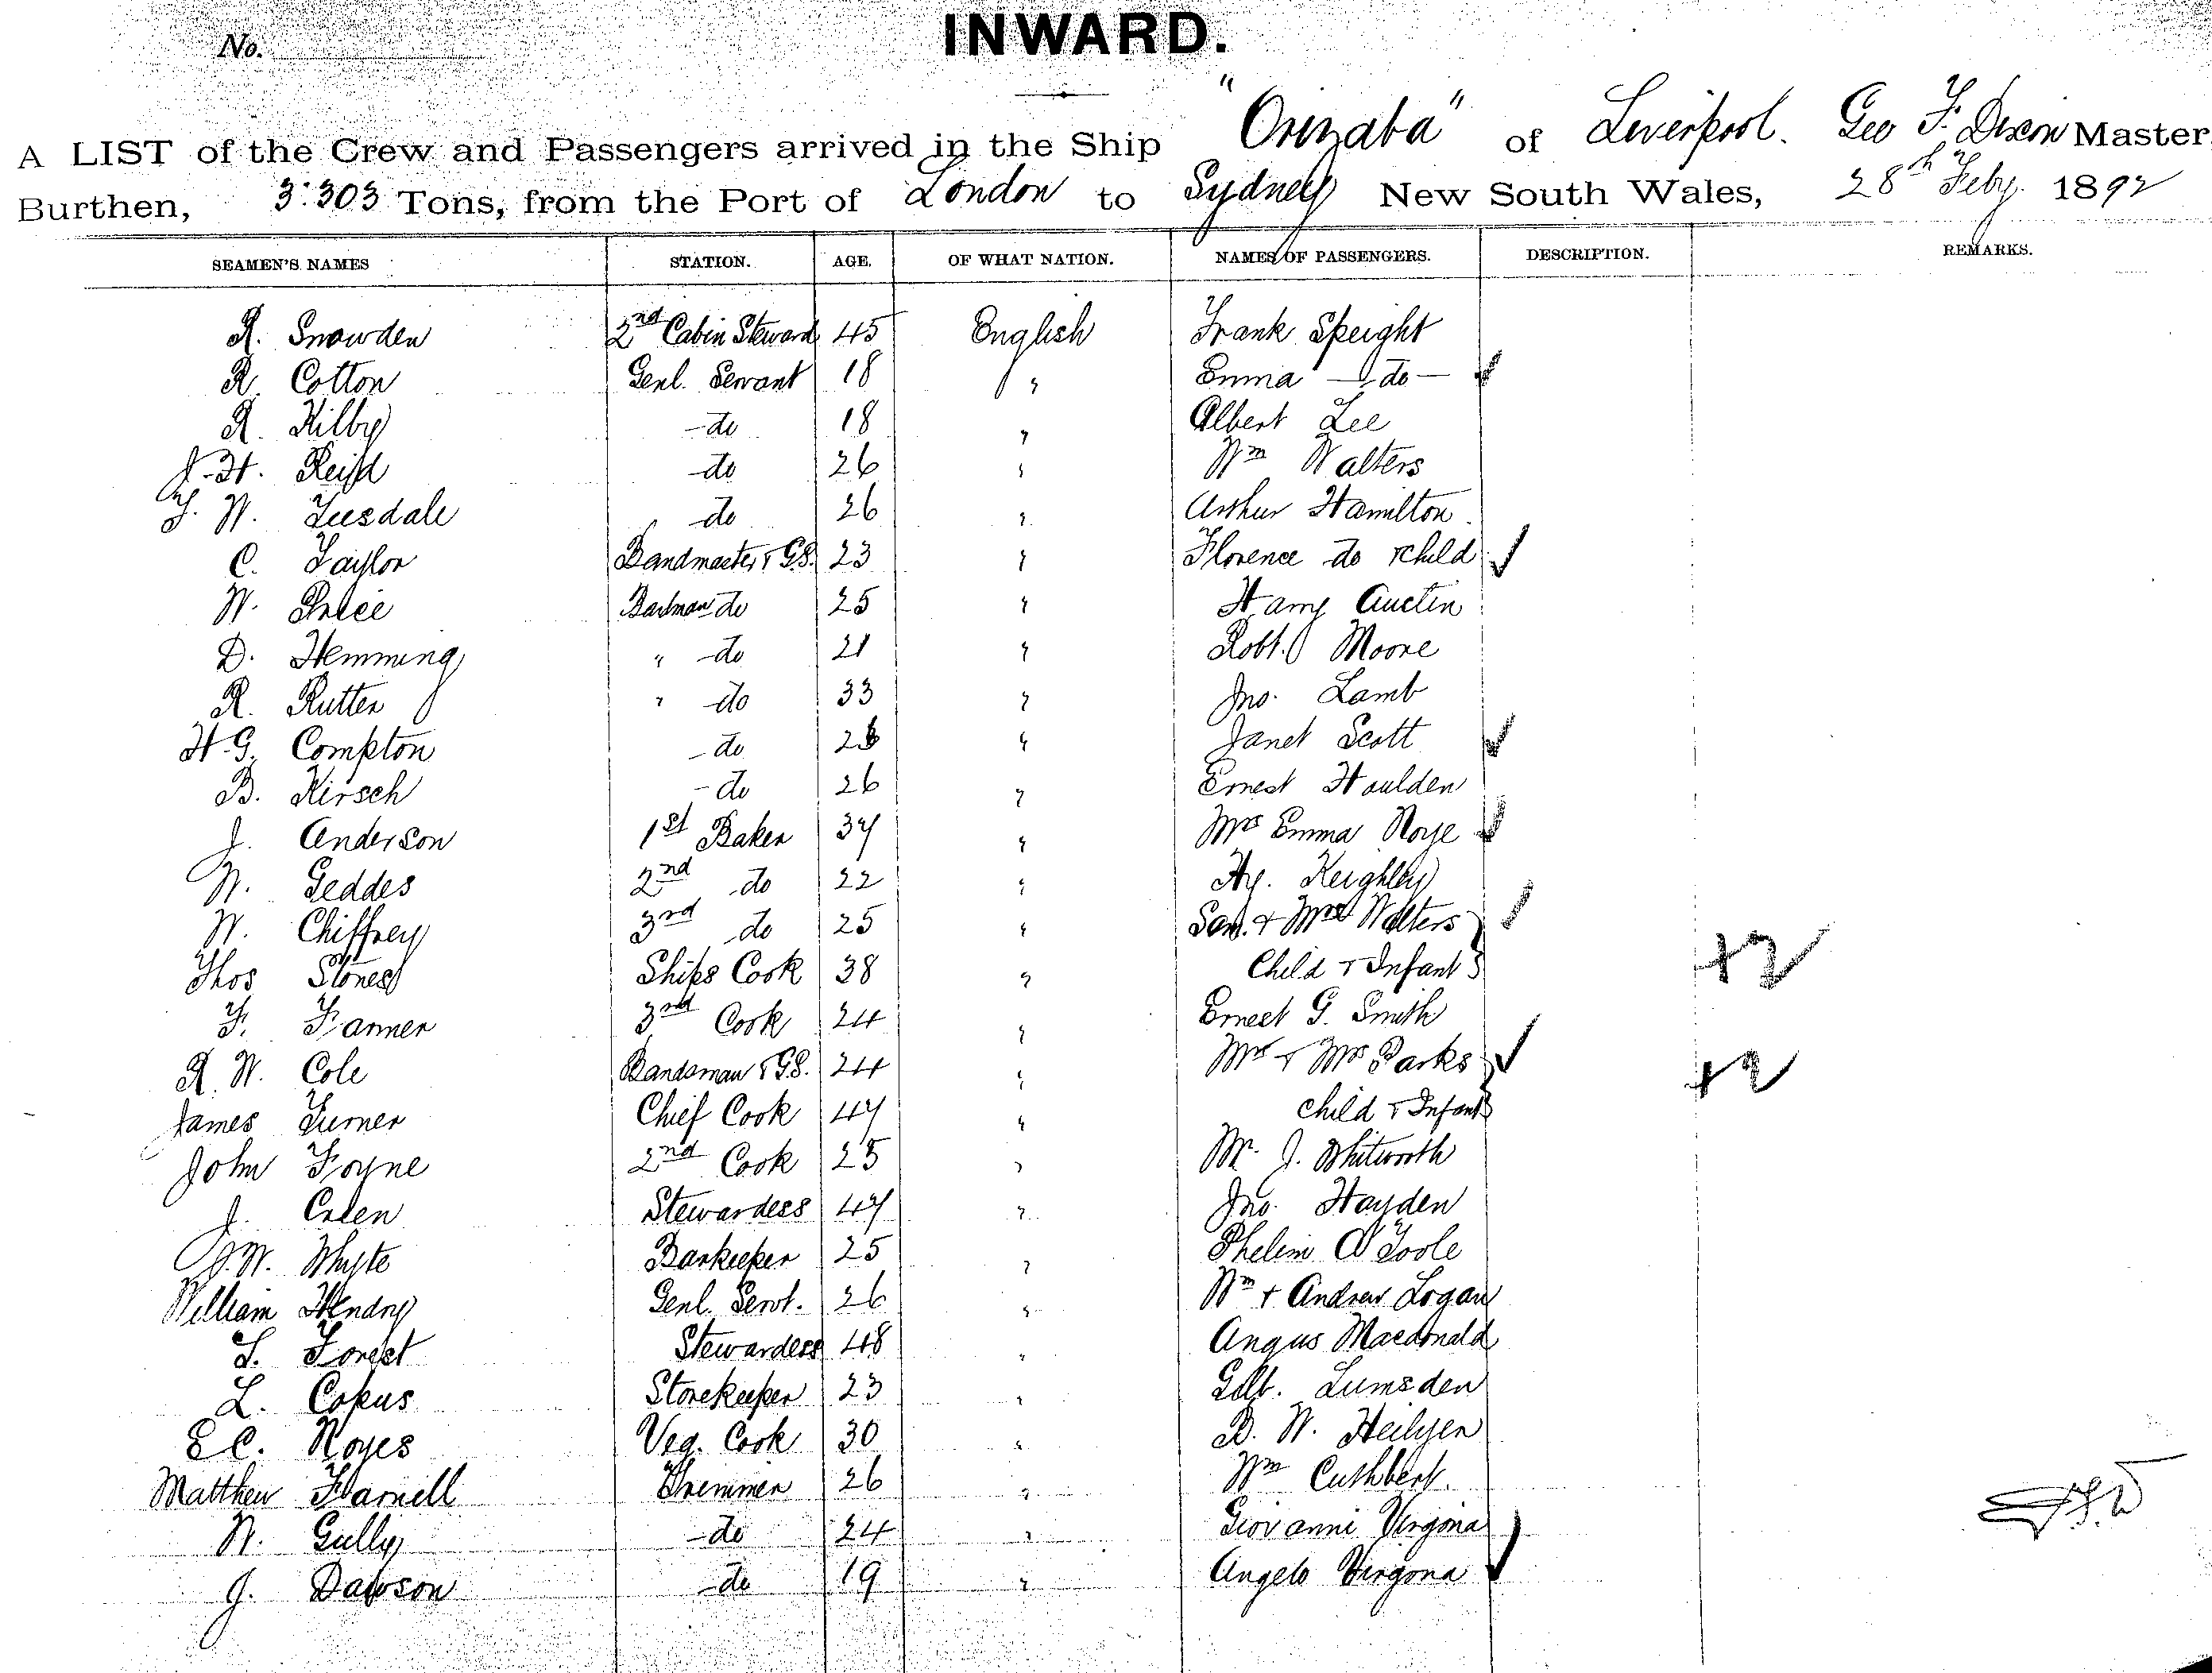 No.
INWARD.
A LIST of the Crew and Passengers arrived in the Ship "Orizaba" of Liverpool. Geo F. Dixon Master
Burthen, 3.303 Tons, from the Port of London to Sydney New South Wales, 28th Feby. 1892
SEAMEN'S NAMES STATION. AGE. OF WHAT NATION. NAMES OF PASSENGERS. DESCRIPTION. REMARKS.
R. Snowden 2nd Cabin Steward 45 English Frank Speight
R. Cotton Genl. Servant 18 " Emma - do -
R. Kilby - do 18 " Albert Lee
J. H. Reid - do 26 " Wm Walters
T. W. Teesdale - do 26 " Arthur Hamilton
C. Taylor Bandmaster & G.S. 23 " Florence do & Child
W. Price Badman do 25 " Harry Austin
D. Hemming " - do 21 " Robt. Moore
R. Rutter " - do 33 " Jno. Lamb
H. G. Compton - do " Janet Scott
B. Kirsch - do 26 " Ernest Houlden
J. Anderson 1st Baker 34 " Mrs Emma Roye
W. Geddes 2nd do 22 " Hy. Keighley
W. Chiffrey 3rd do 25 " Saml. & Mrs Walters
Thos Stones Ships Cook 38 " Child & Infant +2
F. Fanner 3rd Cook 24 " Ernest G. Smith
R. W. Cole Bandsman & G.S. 24 " Mr & Mrs Parks +2
James Turner Chief Cook 47 " Child & Infant
John Foyne 2nd Cook 25 " Mr. J. Whitworth
J. Stewardess 47 " Jno. Hayden
J. W. Whyte Barkeeper 25 " Phelim O'Toole
William Hendry Genl. Servt. 26 " Wm & Andrew Logan
S. Forest Stewardess 48 " Angus Macdonald
L. Copus Storekeeper 23 " Gilb. Lumsden
E C. Noyes Veg. Cook 30 " B. W. Heilyen
Matthew Farnell Trimmer 26 " Wm Cuthbert.
W. Gully - do 24 " Giovanni Virgona
J. Dawson - do 19 " Angelo Virgona